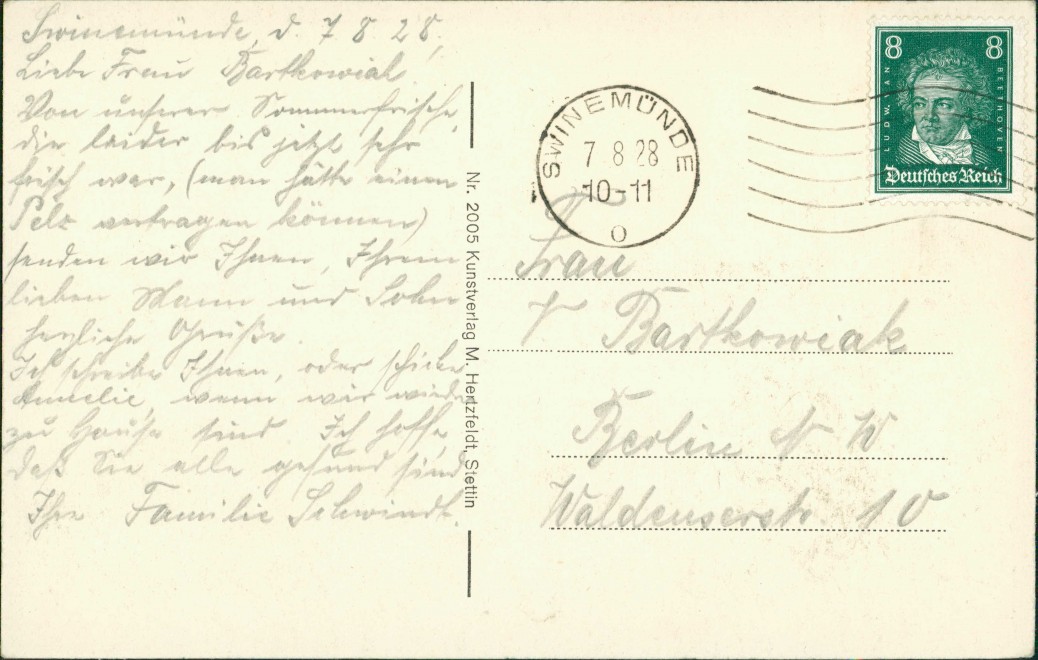 Swinemünde, d. 7 8. 28.
Liebe Frau Bartkowiak!
Von unserer Sommerfrische,
die leider bis jetzt sehr
frisch war, (man hätte einen
Pelz vertragen können)
senden wir Ihnen, Ihrem
lieben Mann und Sohn
herzliche Grüße.
Ich schreibe Ihnen, oder schicke
Annelie, wenn wir wieder
zu Hause sind. Ich hoffe,
daß Sie alle gesund sind
Ihre Familie Schwindt.
Nr. 2005 Kunstverlag M. Hertzfeldt, Stettin
SWINEMÜNDE
7.8.28
10-11
o
8 8
LUDW. VAN BEETHOVEN
Deutsches Reich
Frau
Bartkowiak
Berlin N W
Waldenserstr. 10